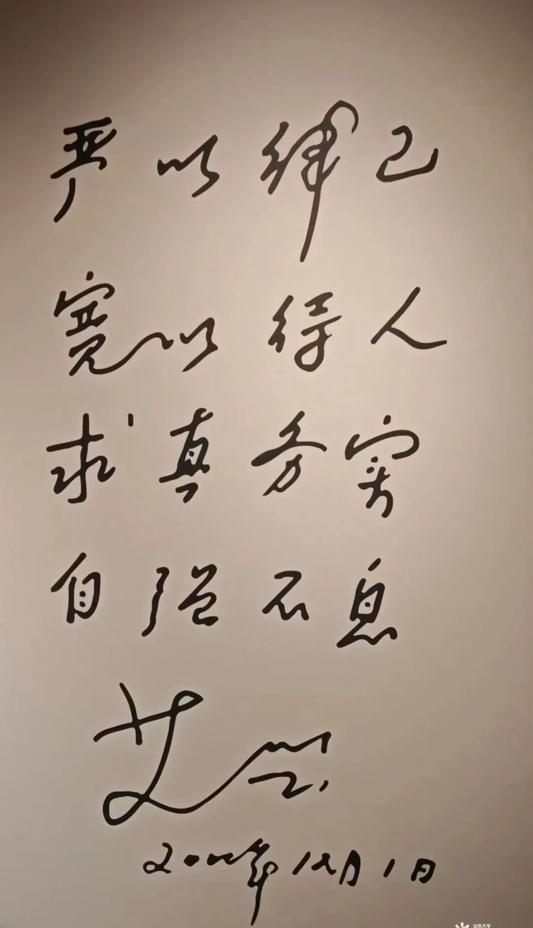 严以律己
宽以待人
求真务实
自强不息
艾兴
2000年12月1日